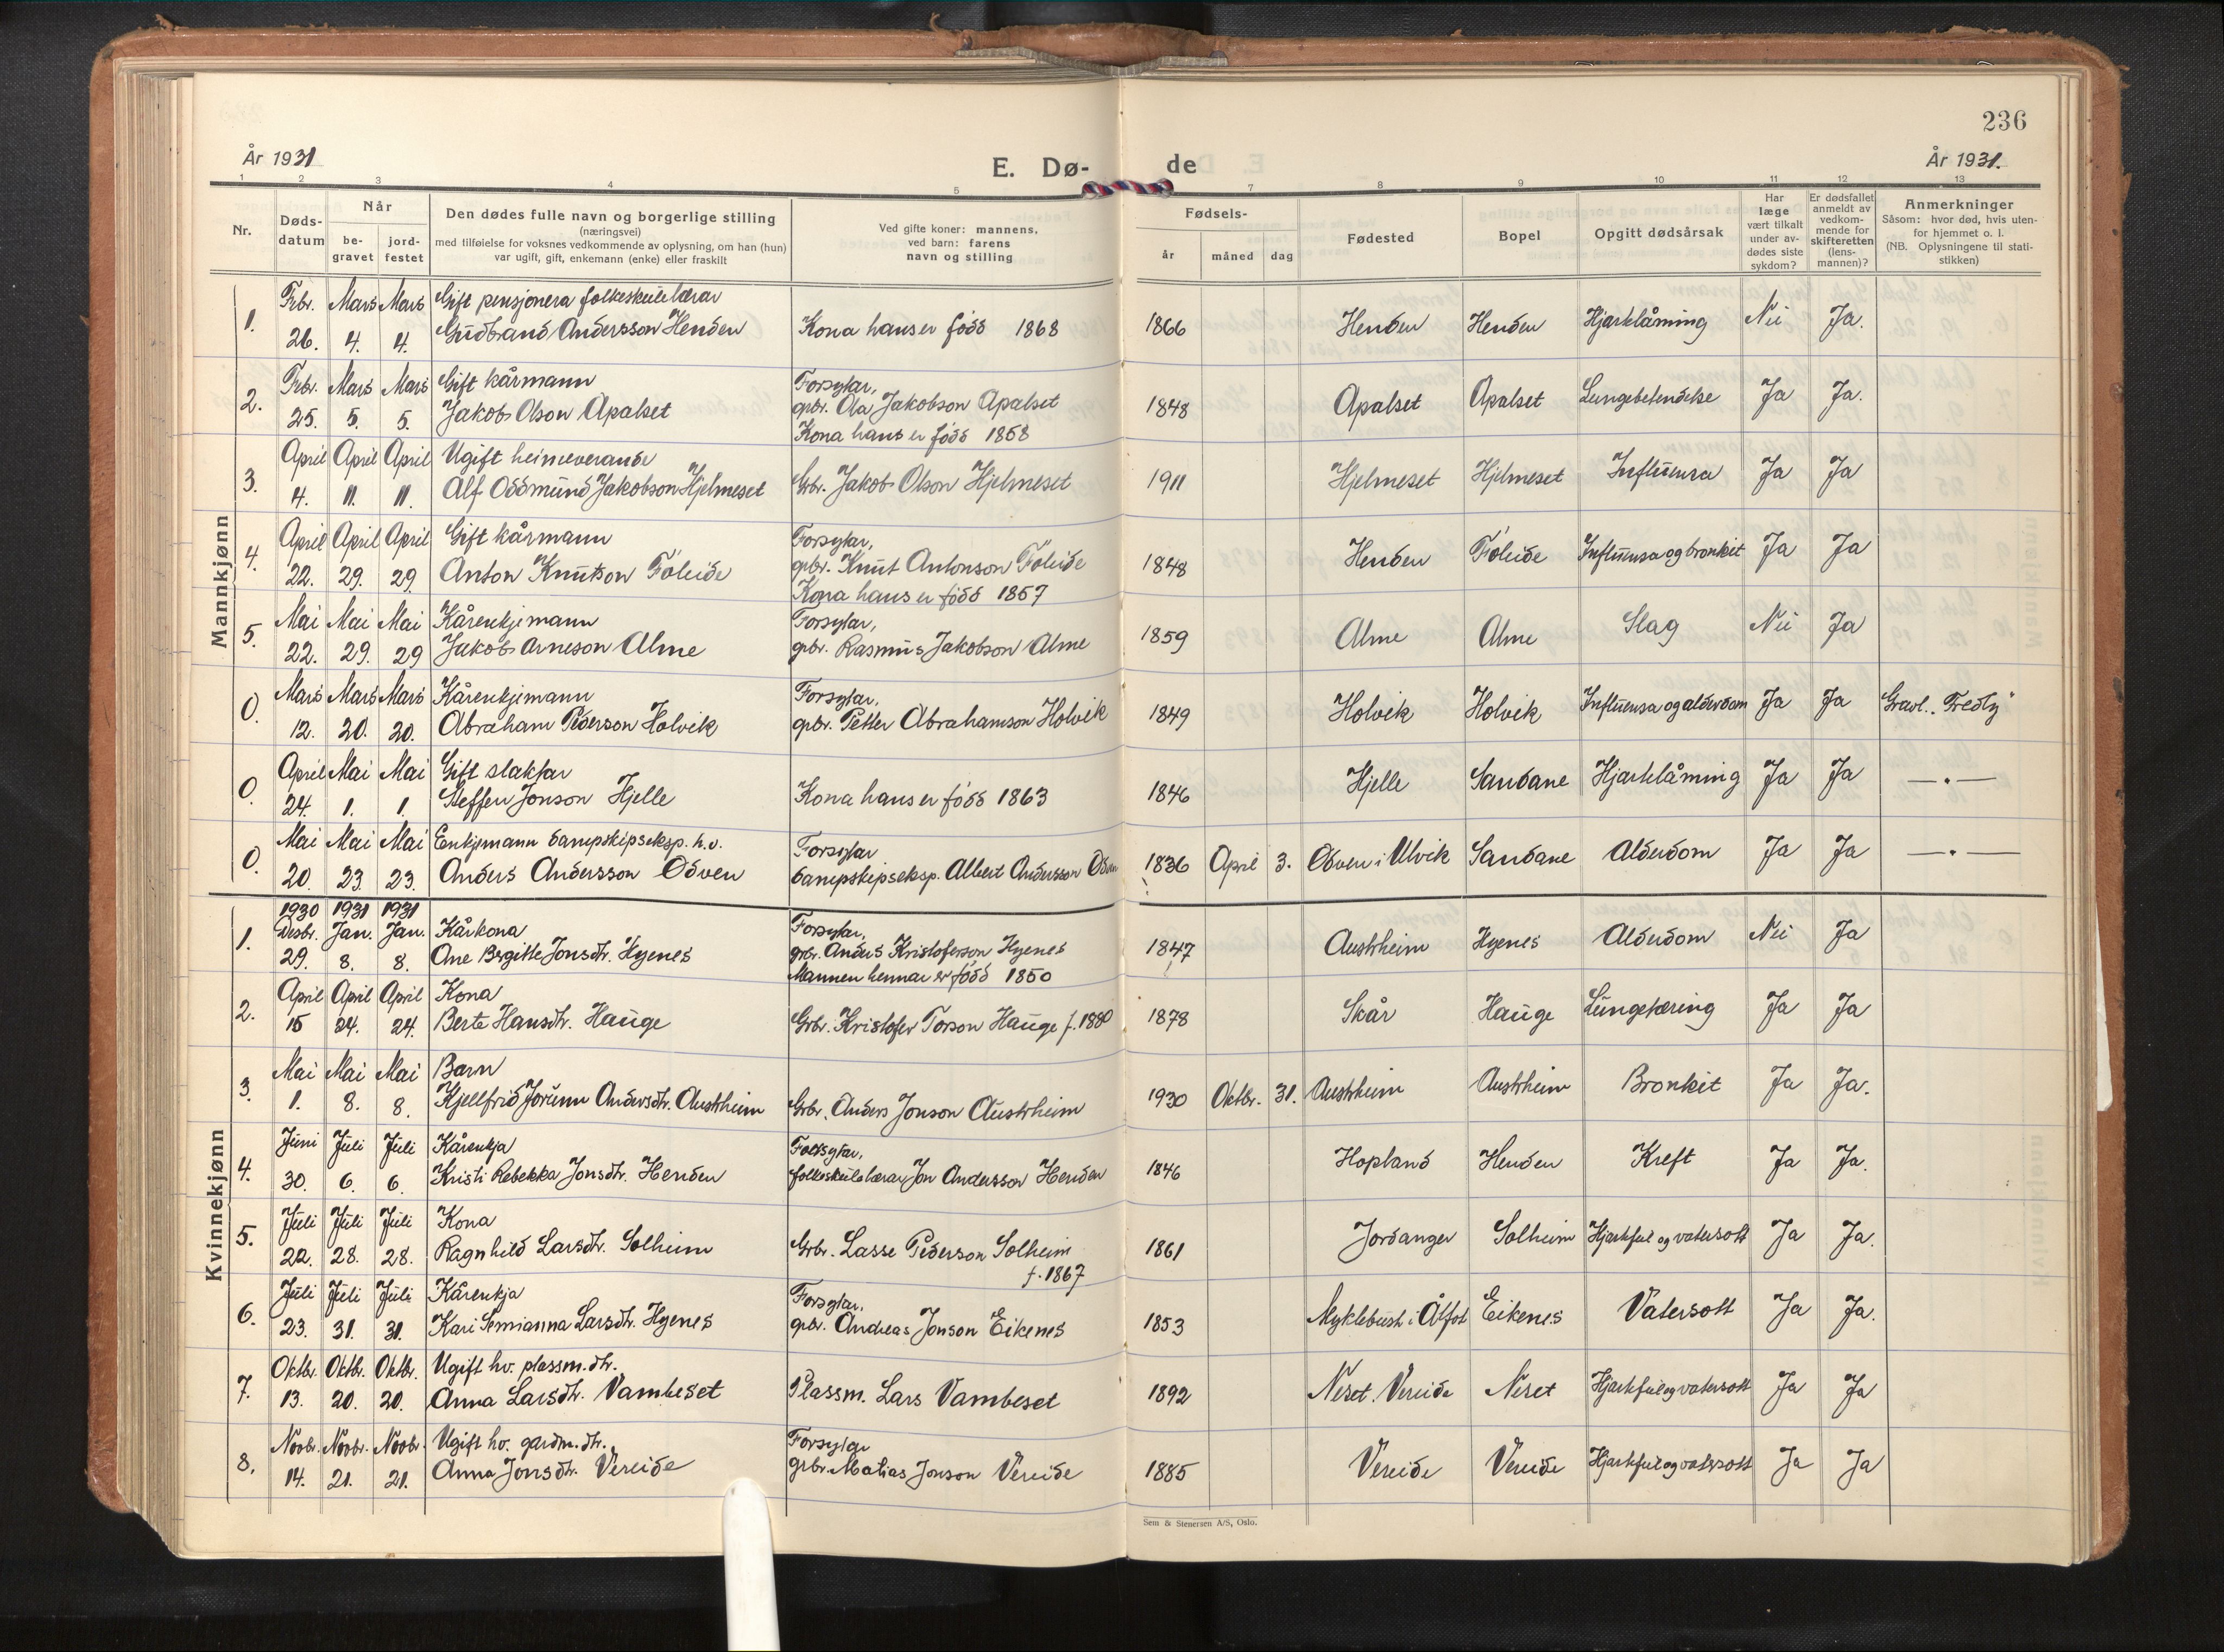 236
År 1931
E. Dø-
de
År 1931.
1 2 3 4 5 7 8 9 10 11 12 13
Nr.
Døds-
datum
Når
be-
gravet
jord-
festet
Den dødes fulle navn og borgerlige stilling
(næringsvei)
med tilføielse for voksnes vedkommende av oplysning, om han (hun)
var ugift, gift, enkemann (enke) eller fraskilt
Ved gifte koner: mannens,
ved barn: farens
navn og stilling
Fødsels-
år måned dag
Fødested
Bopel
Opgitt dødsårsak
Har
læge
vært tilkalt
under av-
dødes siste
sykdom?
Er dødsfallet
anmeldt av
vedkom-
mende for
skifteretten
(lens-
mannen)?
Anmerkninger
Såsom: hvor død, hvis uten-
for hjemmet o. l.
(NB. Oplysningene til stati-
stikken)
Mannkjønn
Febr. Mars Mars Gift pensjonera folkeskulelærar
1. 26. 4. 4. Gudbrand Andersson Henden Kona hans er fødd 1868 1866 Henden Henden Hjarteläming Nei Ja.
Febr. Mars Mars Gift kårmann Forsytar,
2. 25. 5. 5. Jakob Olson Apalset grbr. Ola Jakobson Apalset 1848 Apalset Apalset Lungebetendelse Ja Ja.
Kona hans er fødd 1858
April April April Ugift heimeverande
3. 4. 11. 11. Alf Oddmund Jakobson Hjelmeset Grbr. Jakob Olson Hjelmeset 1911 Hjelmeset Hjelmeset Influensa Ja Ja
April April April Gift kårmann Forsytar,
4. 22. 29. 29 Anton Knutson Føleide grbr. Knut Antonson Føleide 1848 Henden Føleide Influensa og bronkit Ja Ja
Kona hans er fødd 1857
Mai Mai Mai Kårenkjemann Forsytar,
5. 22. 29. 29 Jakob Arneson Alme grbr. Rasmus Jakobson Alme 1859 Alme Alme Slag Nei Ja
Mars Mars Mars Kårenkjemann Forsytar,
0. 12. 20. 20. Abraham Pederson Holvik grbr. Petter Abrahamson Holvik 1849 Holvik Holvik Influensa og alderdom Ja Ja Gravl. "Fredly"
April Mai Mai Gift slaktar
0. 24. 1. 1. Steffen Jonson Hjelle Kona hans er fødd 1863 1846 Hjelle Sandane Hjartelåming Ja Ja — " —
Mai Mai Mai Enkjemann dampskipseksp. h.v. Forsytar
0. 20. 23. 23. Anders Andersson Odven dampskipseksp. Albert Andersson Odven 1836 April 3. Odven i Ulvik Sandane Alderdom Ja Ja — " —
Kvinnekjønn
1930 1931 1931
Desbr. Jan. Jan. Kårkona Forsytar,
1. 29. 8. 8. Ane Bergitte Jonsdtr. Hyenes grbr. Anders Kristoferson Hyenes 1847 Austrheim Hyenes Alderdom Nei Ja
Mannen hennar er fødd 1850
April April April Kona
2. 15 24. 24. Berte Hansdtr. Hauge Grbr. Kristofer Torson Hauge f. 1880 1878 Skår Hauge Lungetæring Ja Ja
Mai Mai Mai Barn
3. 1. 8. 8. Kjellfrid Jorunn Andersdtr. Austrheim Grbr. Anders Jonson Austrheim 1930 Oktbr. 31. Austrheim Austrheim Bronkit Ja Ja.
Juni Juli Juli Kårenkja Forsytar,
4. 30. 6. 6. Kristi Rebekka Jonsdtr. Henden folkeskulelærar Jon Andersson Henden 1846 Hopland Henden Kreft Ja Ja.
Juli Juli Juli Kona
5. 22. 28. 28. Ragnhild Larsdtr. Solheim Grbr. Lasse Pederson Solheim 1861 Jordanger Solheim Hjartefeil og vatersott Ja Ja.
f. 1867
Juli Juli Juli Kårenkja Forsytar,
6. 23. 31. 31. Kari Semianna Larsdtr. Hyenes grbr. Andreas Jonson Eikenes 1853 Myklebust i Ålfot Eikenes Vatersott Ja Ja.
Oktbr. Oktbr. Oktbr. Ugift hv. plassm. dtr.
7. 13. 20. 20. Anna Larsdtr. Vambeset Plassm. Lars Vambeset 1892 Neset. Vereide Neset Hjartefeil og vatersott Ja Ja
Novbr. Novbr. Novbr. Ugift hv. gardm. dtr. Forsytar
8. 14. 21. 21. Anna Jonsdtr. Vereide grbr. Matias Jonson Vereide 1885 Vereide Vereide Hjartefeil og vatersott Ja Ja
Sem & Stenersen A/S, Oslo.